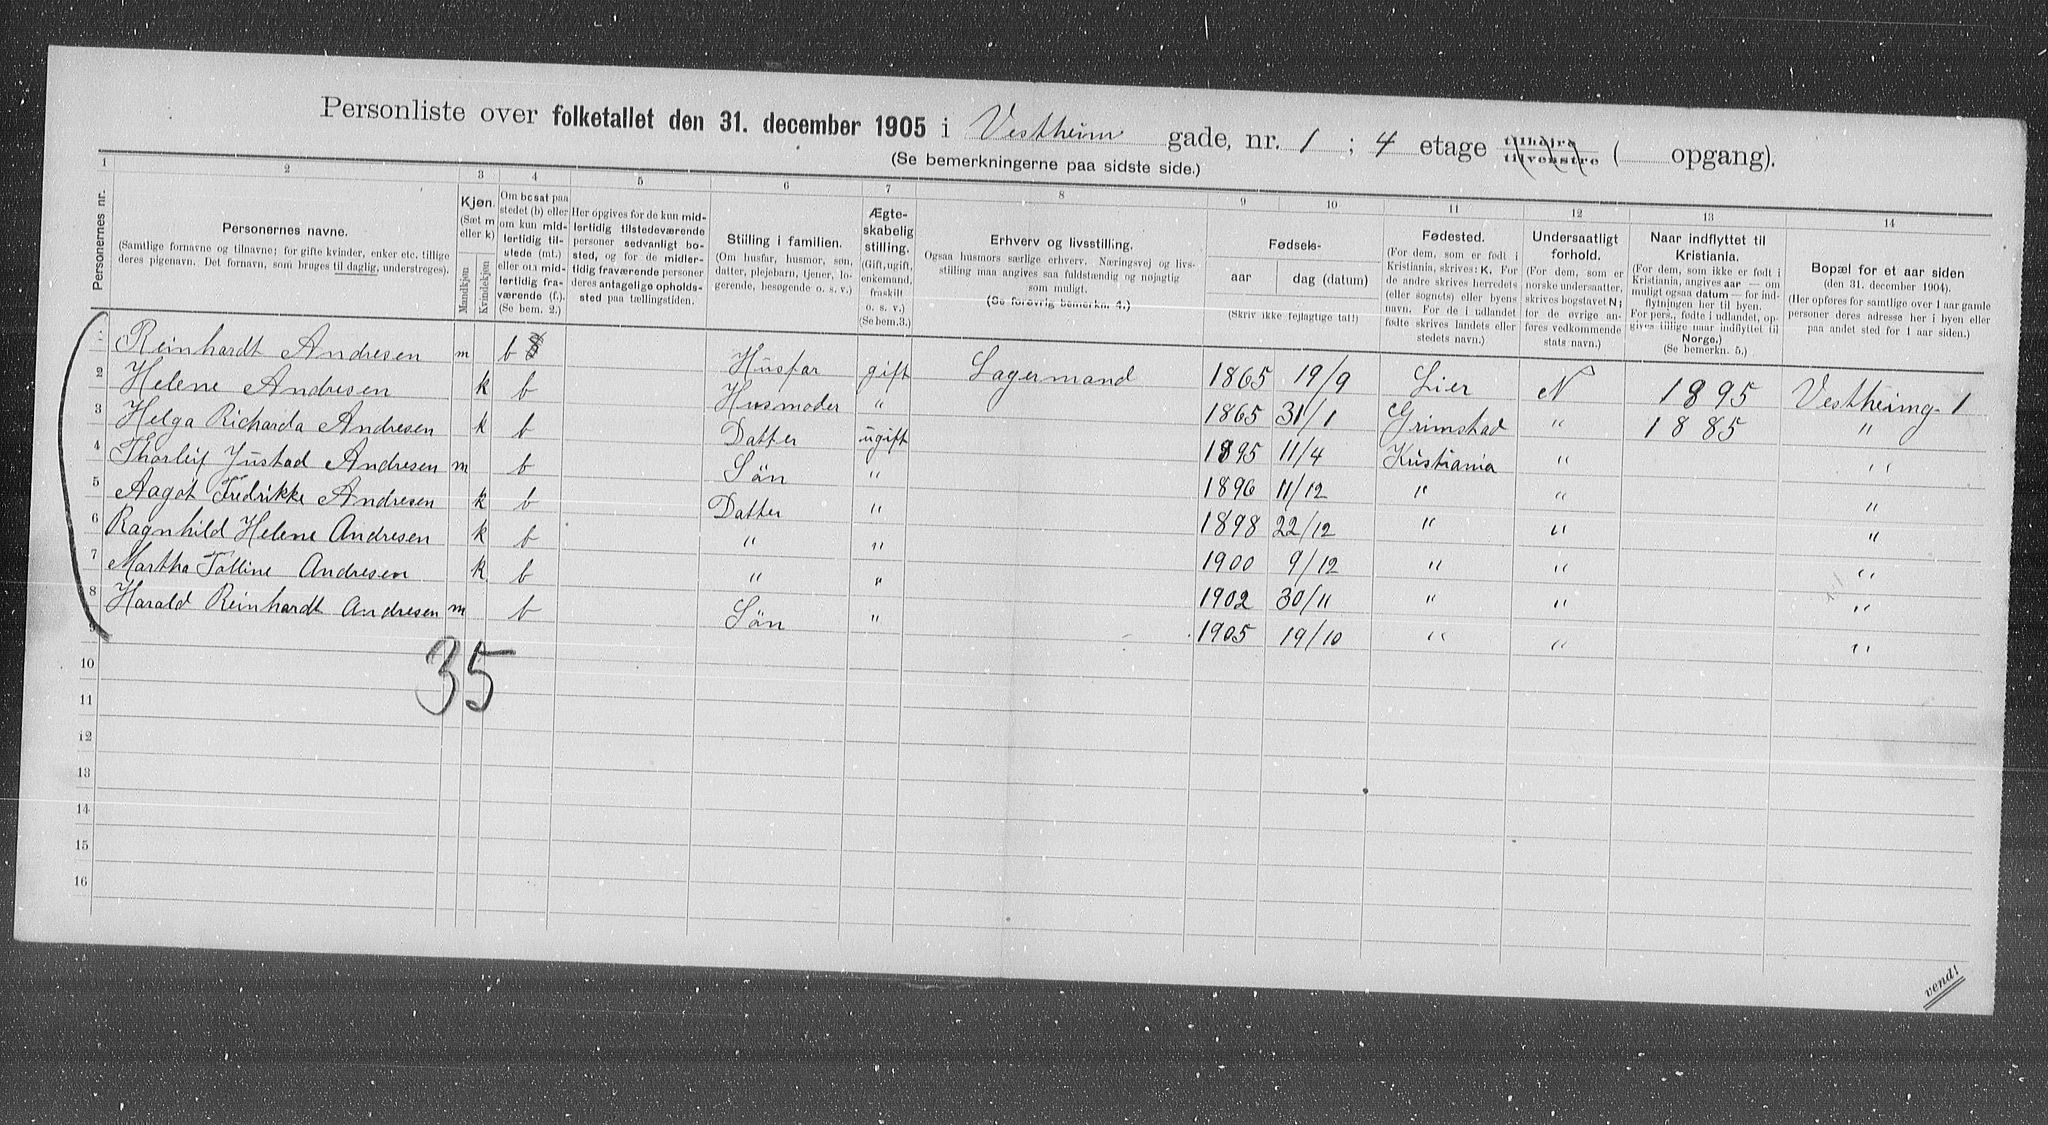 Personliste over folketallet den 31. december 1905 i Vestheim gade, nr. 1 ; 4 etage tilhøjre tilvenstre ( opgang).
(Se bemerkningerne paa sidste side.)
1 2 3 4 5 6 7 8 9 10 11 12 13 14
Personernes nr.
Personernes navne.
(Samtlige fornavne og tilnavne; for gifte kvinder, enker etc. tillige
deres pigenavn. Det fornavn, som bruges til daglig, understreges).
Kjøn.
(Sæt m
eller k)
Mandkjøn
Kvindekjøn
Om bosat paa
stedet (b) eller
om kun mid-
lertidig til-
stede (mt.)
eller om mid-
lertidig fra-
værende (f.).
(Se bem. 2.)
Her opgives for de kun mid-
lertidig tilstedeværende
personer sedvanligt bo-
sted, og for de midler-
tidig fraværende personer
deres antagelige opholds-
sted paa tællingstiden.
Stilling i familien.
(Om husfar, husmor, søn,
datter, plejebarn, tjener, lo-
gerende, besøgende o. s. v.)
Ægte-
skabelig
stilling.
(Gift, ugift,
enkemand,
fraskilt
o. s. v.)
(Se bem. 3.)
Erhverv og livsstilling.
Ogsaa husmors særlige erhverv. Næringsvej og livs-
stilling maa angives saa fuldstændig og nøjagtig
som muligt.
(Se forøvrig bemerkn. 4.)
Fødsels-
aar
dag (datum)
(Skriv ikke fejlagtige tal!)
Fødested.
(For dem, som er født i
Kristiania, skrives: K. For
de andre skrives herredets
(eller sognets) eller byens
navn. For de i udlandet
fødte skrives landets eller
stedets navn.)
Undersaatligt
forhold.
(For dem, som er
norske undersaatter,
skrives bogstavet N;
for de øvrige an-
føres vedkommende
stats navn.)
Naar indflyttet til
Kristiania.
(For dem, som ikke er født i
Kristiania, angives aar — om
muligt ogsaa datum — for ind-
flytningen her til byen.
For pers., fødte i udlandet, op-
gives tillige naar indflyttet til
Norge.)
(Se bemerkn. 5.)
Bopæl for et aar siden
(den 31. december 1904).
(Her opføres for samtlige over 1 aar gamle
personer deres adresse her i byen eller
paa andet sted for 1 aar siden.)
1 Reinhardt Andresen m b Husfar gift Lagermand 1865 19/9 Lier N 1895 Vestheimg. 1
2 Helene Andresen k b Husmoder " 1865 31/1 Grimstad " 1885 "
3 Helga Richarda Andresen k b Datter ugift 1895 11/4 Kristiania " "
4 Thorleif Justad Andresen m b Søn " 1896 11/12 " " "
5 Aagot Fredrikke Andresen k b Datter " 1898 22/12 " " "
6 Ragnhild Helene Andresen k b " " 1900 9/12 " " "
7 Martha Talline Andresen k b " " 1902 30/11 " " "
8 Harald Reinhardt Andresen m b Søn " 1905 19/10 " " "
9
35
10
11
12
13
14
15
16
vend!